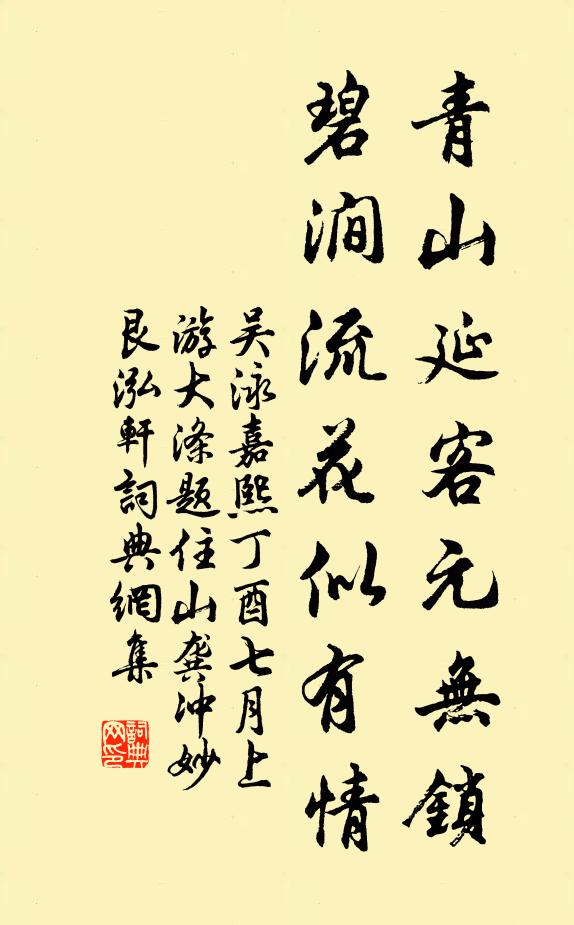 青山延客元無鎖
碧澗流花似有情
吴泳嘉熙丁酉七月上
游大滌題住山龚冲妙
艮泓軒詞典網集
詞典
网印